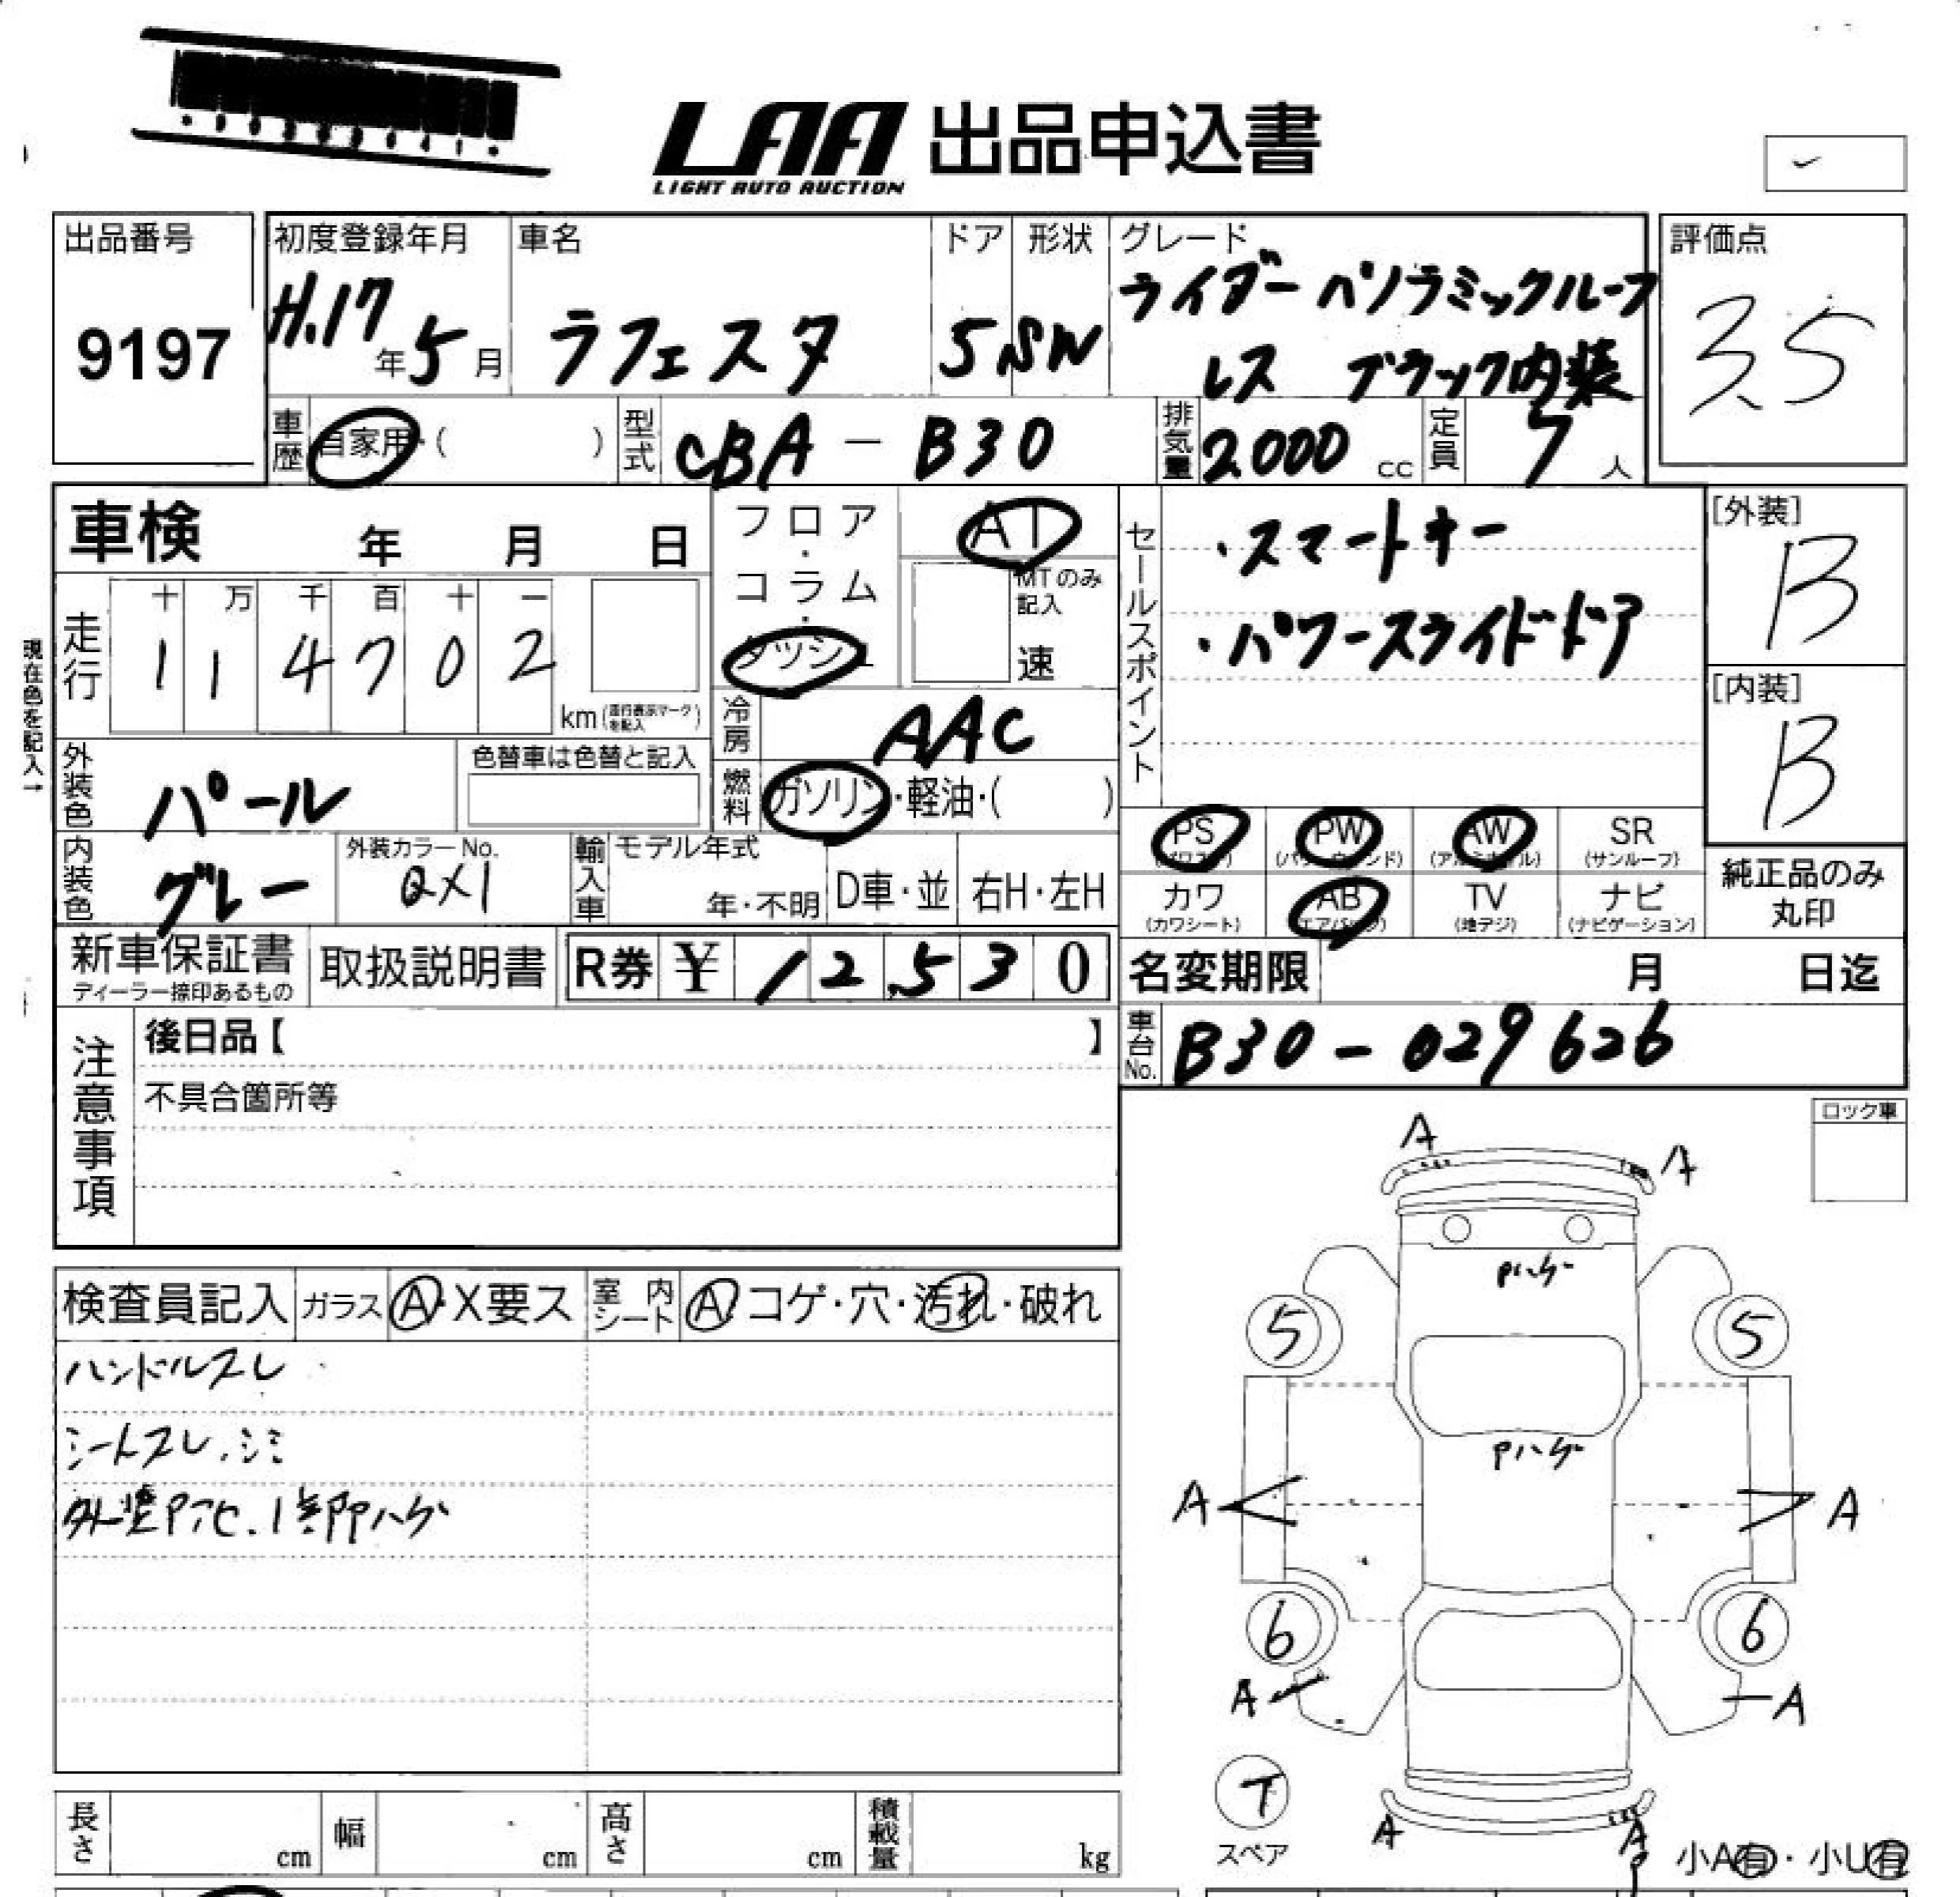 LAA 出品申込書
LIGHT AUTO AUCTION
出品番号
9197
初度登録年月
H.17年 5月
車名
ラフェスタ
ドア
5
形状
SW
グレード
ライダー パノラミックルーフ
レス ブラック内装
評価点
3.5
車歴 自家用・( )
型式 CBA - B30
排気量 2000 cc
定員 7人
車検 年 月 日
フロア・コラム・ダッシュ
AT
MTのみ記入
速
走行
十 万 千 百 十 一
1 1 4 7 0 2
km(走行表示マークを記入)
現在色を記入→
冷房 AAC
燃料 ガソリン・軽油・( )
外装色 パール
色替車は色替と記入
内装色 グレー
外装カラーNo.
QX1
輸入車 モデル年式
年・不明
D車・並
右H・左H
セールスポイント
・スマートキー
・パワースライドドア
[外装]
B
[内装]
B
PS (パワステ)
PW (パワーウィンド)
AW (アルミホイル)
SR (サンルーフ)
カワ (カワシート)
AB (エアバッグ)
TV (地デジ)
ナビ (ナビゲーション)
純正品のみ
丸印
新車保証書
ディーラー捺印あるもの
取扱説明書
R券 ¥ 12,530
名変期限 月 日迄
車台No. B30 - 029626
注意事項
後日品【 】
不具合箇所等
ロック車
検査員記入
ガラス A・X要ス
室内シート A・コゲ・穴・汚れ・破れ
ハンドルスレ
シートスレ.シミ
1部Pハゲ
A
A
Pハゲ
5
5
Pハゲ
A
A
6
6
A
A
T
スペア
A
A
小A有・小U有
長さ cm
幅 cm
高さ cm
積載量 kg